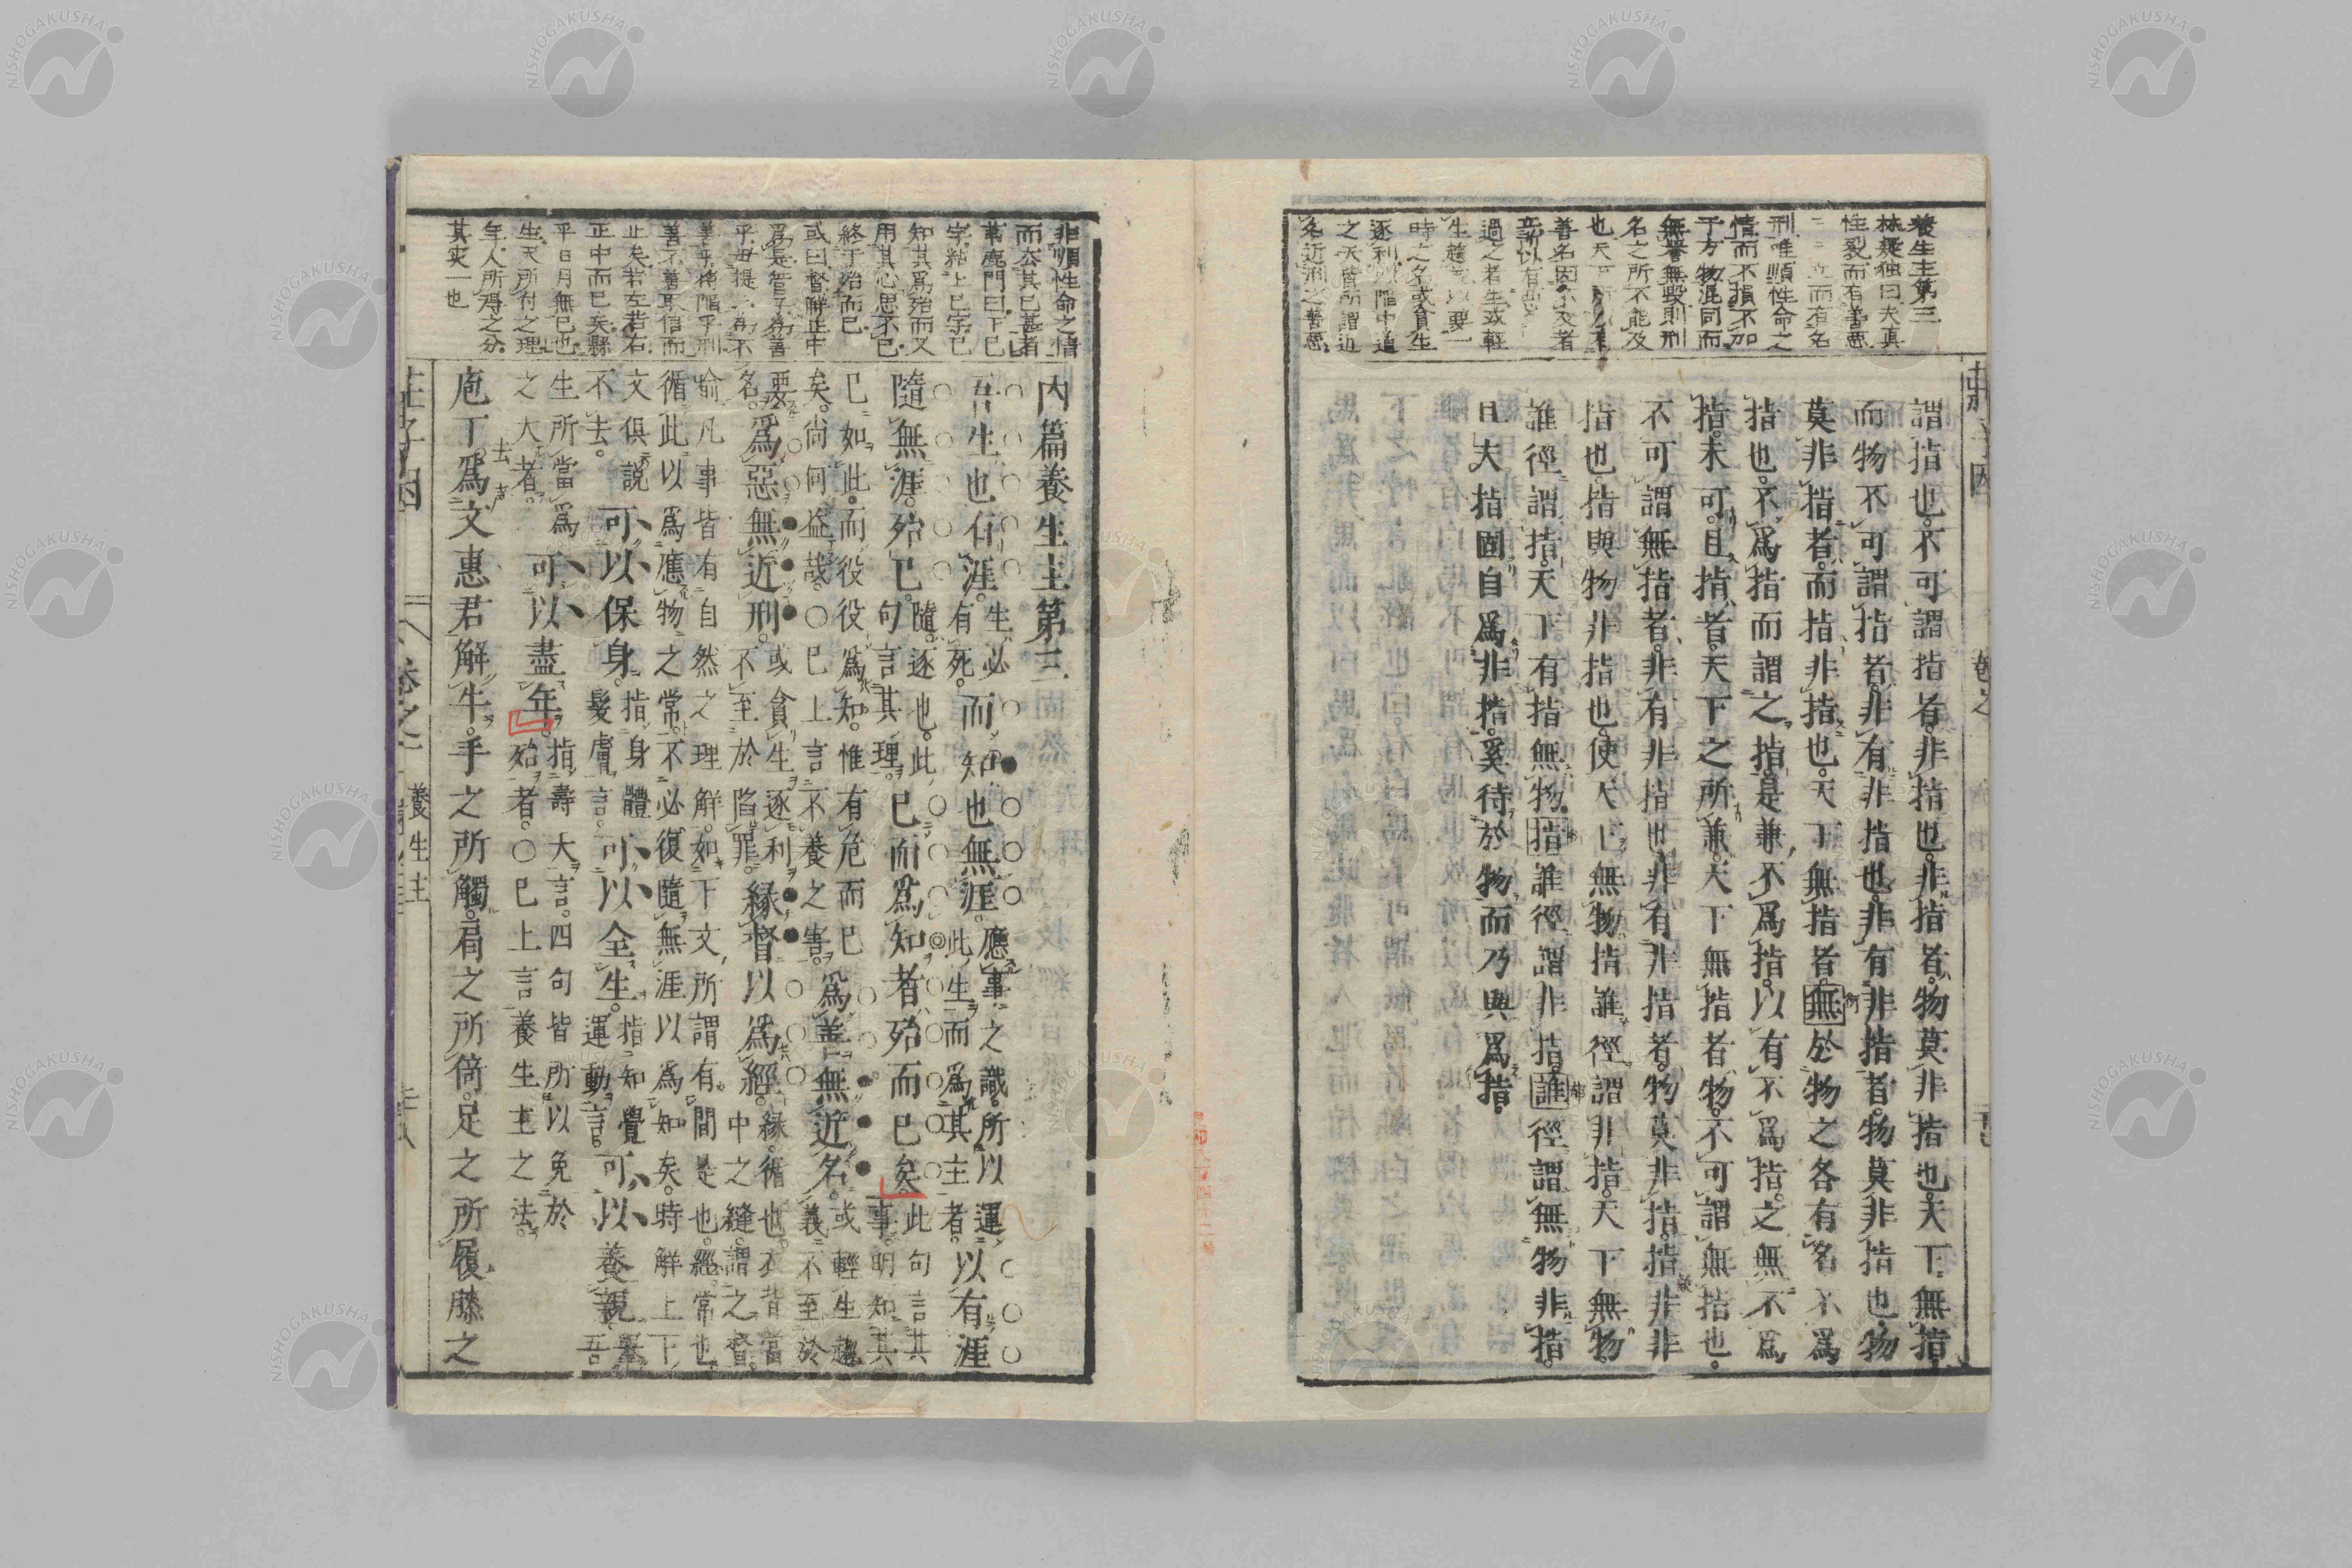 養生主第三
林疑独曰夫真
性裂而有善悪
立而有名
刑唯順性命之
情而不損不加
于方物混同而
無誉無毀則刑
名之所不能及
也天下所以有
善名因不及者
所以有
過之者生或軽
生趨以要一
時之名或貪生
逐利以陥中道
之夭皆所謂近
名近刑之善悪
謂指也不可謂指者非指也非指者物莫非指也天下無指
而物不可謂指者非有非指也非有非指者物莫非指也物
莫非指者而指非指也天下無指者無於物之各有名不為
指也不為指而謂之指是兼不為指以有不為指之無不為
指未可且指者天下之所兼天下無指者物不可謂無指也
不可謂無指者非有非指也非有非指者物莫非指指非非
指也指與物非指也使天下無物指誰徑謂非指天下無物
誰徑謂指天下有指無物指誰徑謂非指誰徑謂無物非指
且夫指固自爲非指奚待於物而乃與爲指
莊子因
非順性命之情
而公其已甚者
華鹿門曰下已
字粘上已字已
知其爲殆而又
用其心思不已
終于治而已
或曰督解正中
爲是管子爲善
乎毋提提爲不
善乎将陥乎刑
善不善取信而
止矣若左若右
正中而已矣縣
乎日月無已也
生天所付之理
年人所得之分
其実一也
内篇養生主第三
吾生也有涯生必有死而知也無涯應事之識所以運此生而爲其主者以有涯
隨無涯殆已隨逐也此句言其理已而爲知者殆而已矣此句言其事明知其
已如此而役役爲知惟有危而已矣尚何益哉○已上言不養之害爲善無近名或輕生趨義不至於
要名爲惡無近刑或貪生逐利不至於陷罪緣督以爲經緣循也衣背當中之縫謂之督
喻凡事皆有自然之理解如下文所謂有間是也經常也
循此以爲應物之常不必復隨無涯以爲知矣時解上下
文俱說不去可以保身指身體髮膚言可以全生指知覺運動言可以養親養吾
生所當爲之大者可以盡年指壽夭言四句皆所以免於殆者○已上言養生主之法
庖丁爲文惠君解牛手之所觸肩之所倚足之所履膝之
莊子因
卷之一
養生主
NISHOGAKUSHA